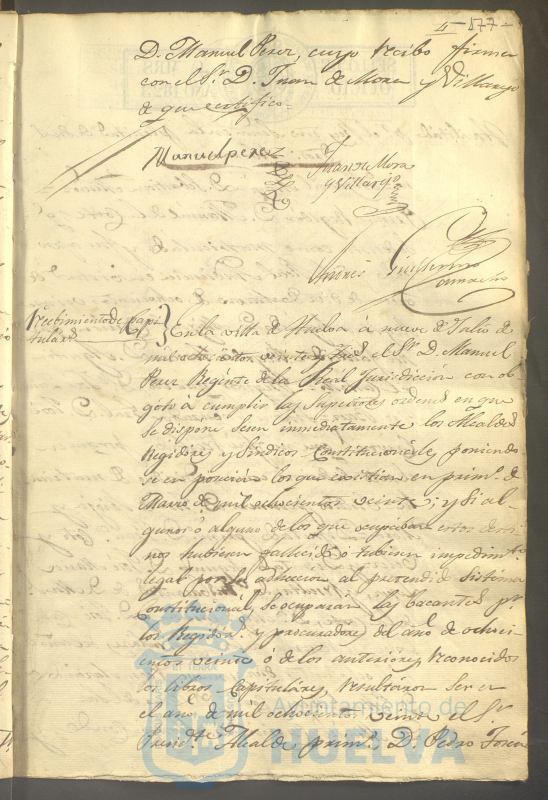 4 - 577 -
D. Manuel Perez, cuyo recibo firma
con el Sr. D. Juan de Mora y Villarejo
de que certifico.
Manuel perez
Juan de Mora
y Villarejo
Andres Guillermo
Camacho
Recibimiento de Capi
tulares
En la villa de Huelva á nueve de Julio de
mil ochocientos veinte y tres, el Sr. D. Manuel
Perez Regente de la Real Jurisdiccion con ob
geto á cumplir las Superiores ordenes en que
se dispone sesen inmediatamente los Alcaldes
Regidores y Sindicos Constitucionales poniendo
se en posecion los que existian en prim.o de
Marzo de mil ochocientos veinte; y si al-
gunos ó alguno de los que ocupaban estos desti
nos hubieren fallecido ó tubieren impedim.to
legal por la adiccion al pretendido sistema
Constitucional, se ocuparan las Vacantes pr.
los Regidores y procuradores del año de ochoci
entos veinte ó de los anteriores reconocidos
los libros Capitulares resultaron ser en
el año de mil ochocientos veinte el Sr.
Alcalde prim.o D. Pedro
Ayuntamiento de
HUELVA